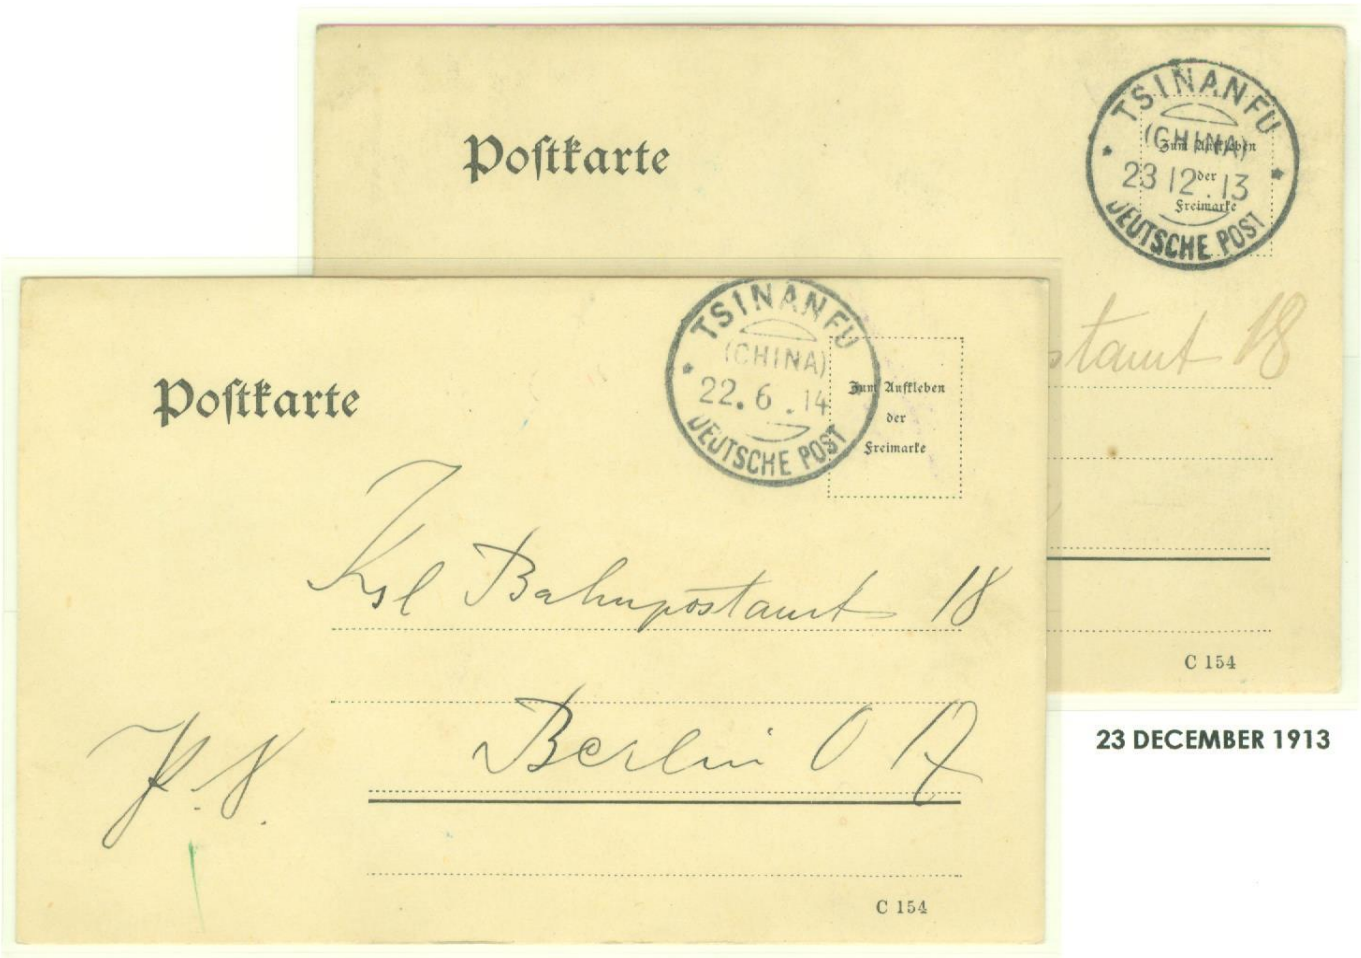 Postkarte
TSINANFU
(CHINA)
23 12 . 13
DEUTSCHE POST
Zum Aufkleben
der
Freimarke
stamt 18
C 154
23 DECEMBER 1913
Postkarte
TSINANFU
(CHINA)
22. 6 . 14
DEUTSCHE POST
Zum Aufkleben
der
Freimarke
Ksl Bahnpostamt 18
Berlin O 17
C 154